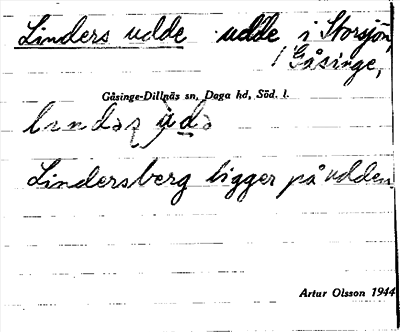 Linders udde udde i Storsjön,
i Gåsinge,
Gåsinge-Dillnäs sn, Daga hd, Söd. l.
Lindersberg ligger på udden.
Artur Olsson 1944